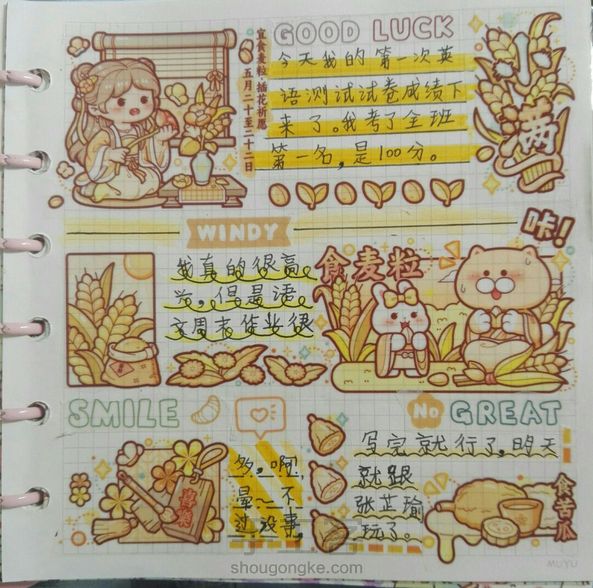 GOOD LUCK
今天我的第一次英
语测试试卷成绩下
来了。我考了全班
第一名，是100分。
宜食麦粒·插花祈愿
五月二十至二十二日
小满
WINDY
咔!
我真的很高
兴，但是语
文周末作业很
食麦粒
SMILE
No GREAT
多，啊，
晕～不
过，没事，
写完就行了，明天
就跟
张芷瑜
玩了。
食苦瓜
MUYU
shougongke.com